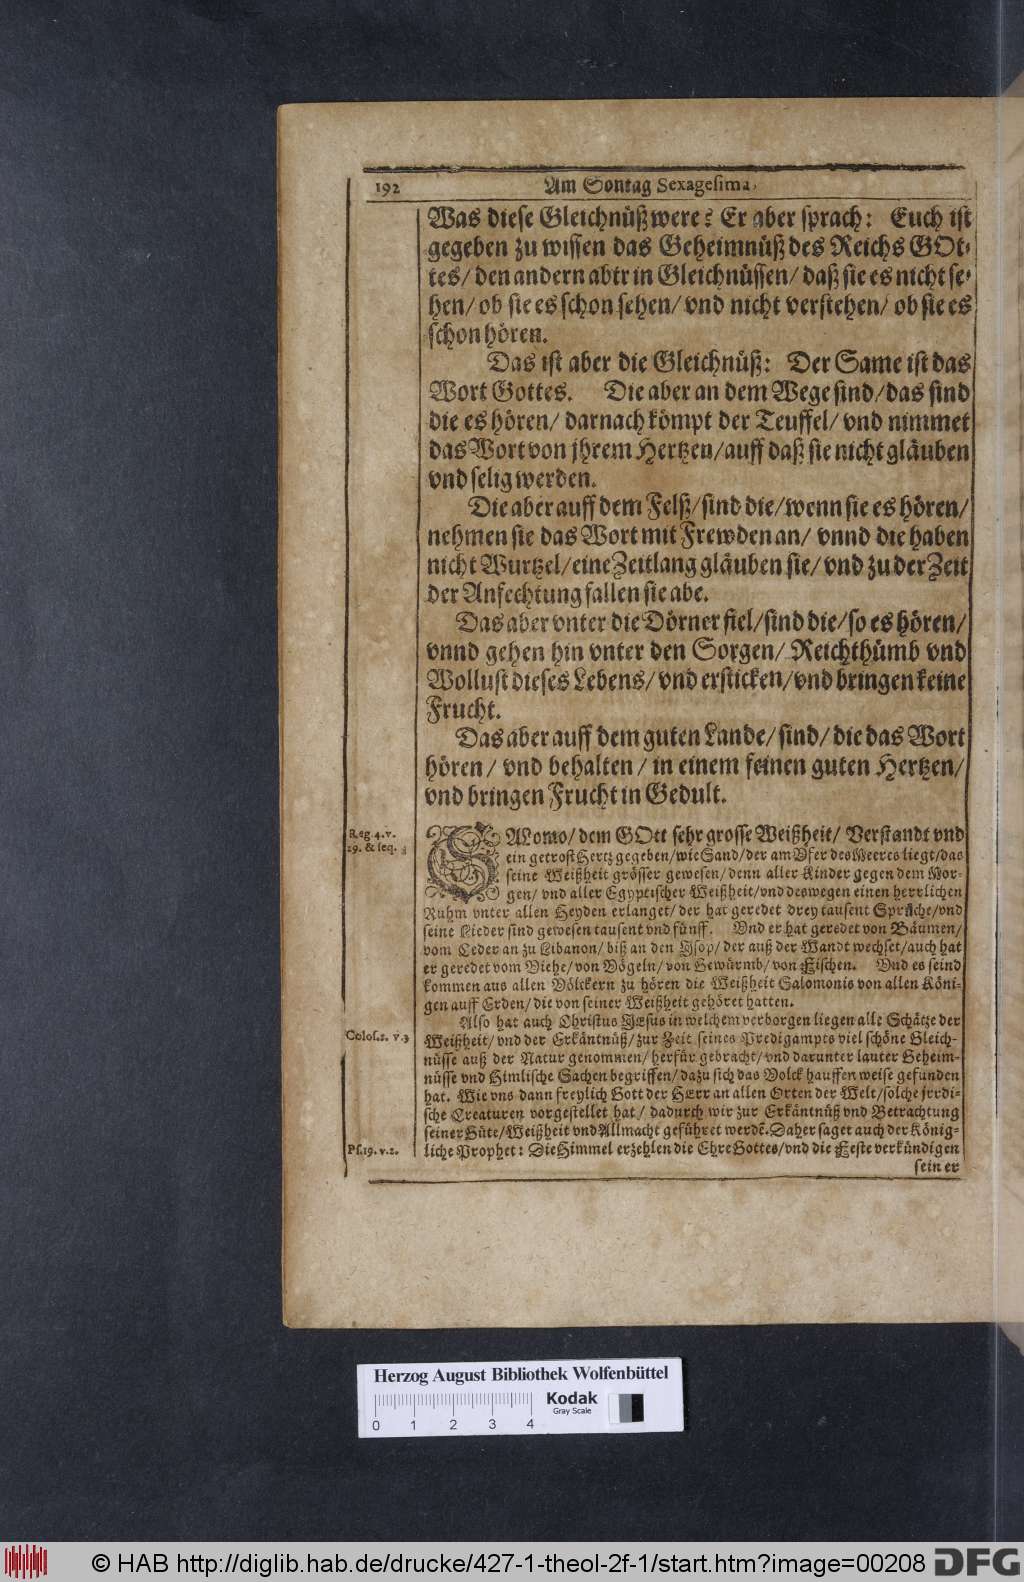 192 Am Sontag Sexagesima,
Was diese Gleichnüß were? Er aber sprach: Euch ist
gegeben zu wissen das Geheimnüß des Reichs GOt-
tes/ den andern abtr in Gleichnüssen/ daß sie es nicht se-
hen/ ob sie es schon sehen/ vnd nicht verstehen/ ob sie es
schon hören.
Das ist aber die Gleichnüß: Der Same ist das
Wort Gottes. Die aber an dem Wege sind/ das sind
die es hören/ darnach kömpt der Teuffel/ vnd nimmet
das Wort von jhrem Hertzen/ auff daß sie nicht gläuben
vnd selig werden.
Die aber auff dem Felß/ sind die/ wenn sie es hören/
nehmen sie das Wort mit Frewden an/ vnnd die haben
nicht Wurtzel/ eine Zeitlang gläuben sie/ vnd zu der Zeit
der Anfechtung fallen sie abe.
Das aber vnter die Dörner fiel/ sind die/ so es hören/
vnnd gehen hin vnter den Sorgen/ Reichthümb vnd
Wollust dieses Lebens/ vnd ersticken/ vnd bringen keine
Frucht.
Das aber auff dem guten Lande/ sind/ die das Wort
hören/ vnd behalten/ in einem feinen guten Hertzen/
vnd bringen Frucht in Gedult.
Reg. 4. v.
29. & seq.
SALomo/ dem GOtt sehr grosse Weißheit/ Verstandt vnd
ein getrost Hertz gegeben/ wie Sand/ der am Vfer des Meeres liegt/ das
seine Weißheit grösser gewesen/ denn aller Kinder gegen dem Mor-
gen/ vnd aller Egyptischer Weißheit/ vnd deswegen einen herrlichen
Ruhm vnter allen Heyden erlanget/ der hat geredet drey tausent Sprüche/ vnd
seine Lieder sind gewesen tausent vnd fünff. Vnd er hat geredet von Bäumen/
vom Ceder an zu Libanon/ biß an den Jsop/ der auß der Wandt wechset/ auch hat
er geredet vom Viehe/ von Vögeln/ von Gewürmb/ von Fischen. Vnd es seind
kommen aus allen Völckern zu hören die Weißheit Salomonis von allen Köni-
gen auff Erden/ die von seiner Weißheit gehöret hatten.
Also hat auch Christus JEsus in welchem verborgen liegen alle Schätze der
Colos. 2. v. 3
Weißheit/ vnd der Erkäntnüß/ zur Zeit seines Predigampts viel schöne Gleich-
nüsse auß der Natur genommen/ herfür gebracht/ vnd darunter lauter Geheim-
nüsse vnd Himlische Sachen begriffen/ dazu sich das Volck hauffen weise gefunden
hat. Wie vns dann freylich Gott der HErr an allen Orten der Welt/ solche jrrdi-
sche Creaturen vorgestellet hat/ dadurch wir zur Erkäntnüß vnd Betrachtung
seiner Güte/ Weißheit vnd Allmacht geführet werdẽ. Daher saget auch der König-
Ps. 19. v. 2.
liche Prophet: Die Himmel erzehlen die Ehre Gottes/ vnd die Feste verkündigen
sein er
Herzog August Bibliothek Wolfenbüttel
0 1 2 3 4
Kodak
Gray Scale
© HAB http://diglib.hab.de/drucke/427-1-theol-2f-1/start.htm?image=00208 DFG